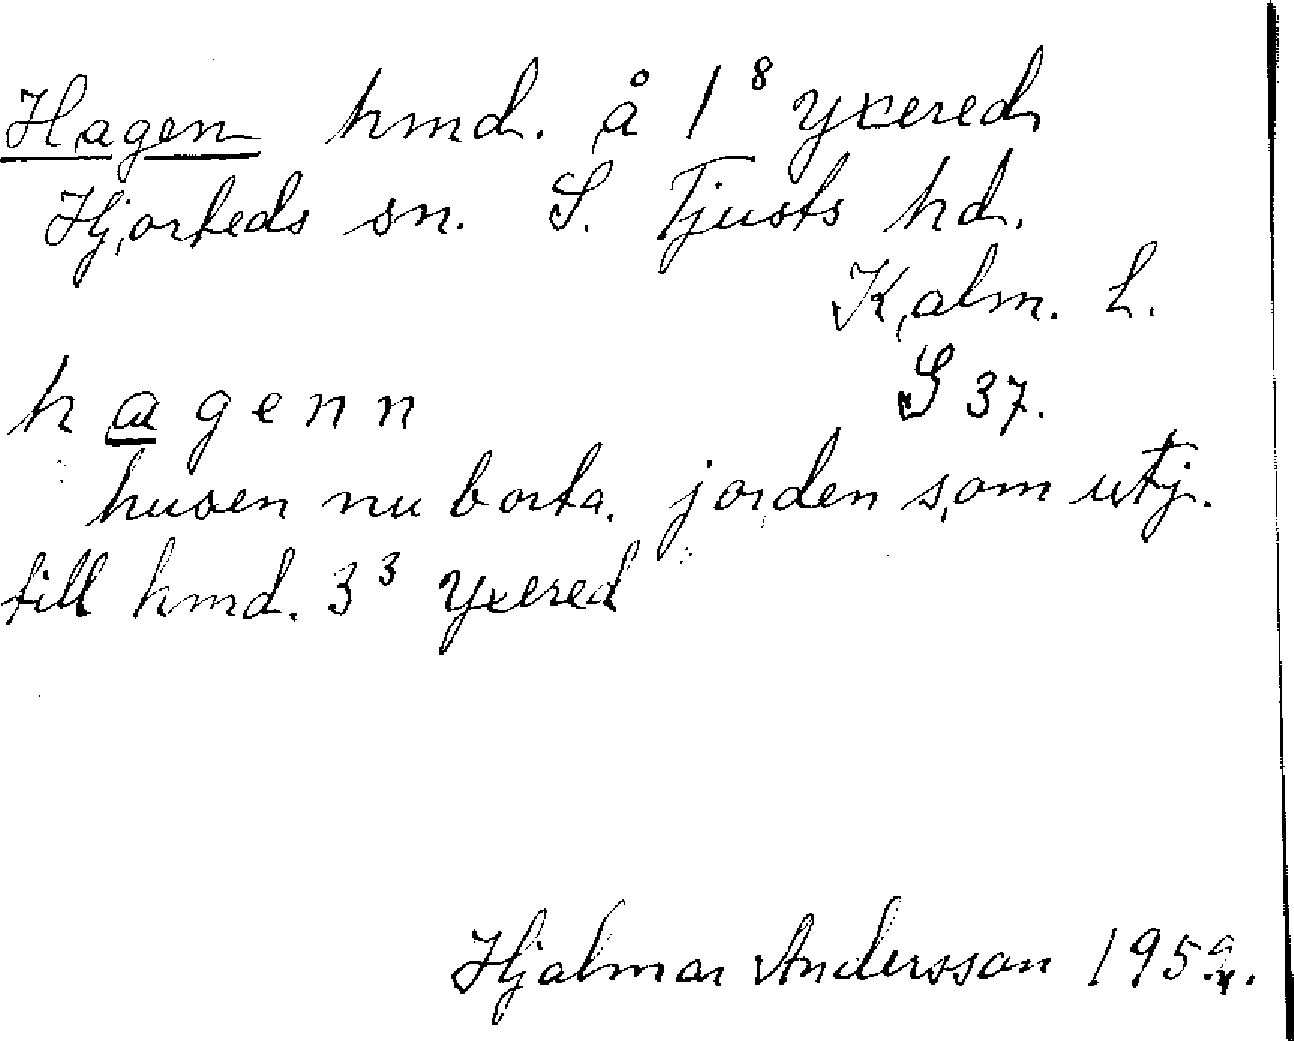 Hagen hmd. å 1⁸ yxered
Hjorteds sn. S. Tjusts hd.
Kalm. L.
S 37.
hagenn
husen nu borta. jorden som utj.
till hmd. 3³ yxered
Hjalmar Andersson